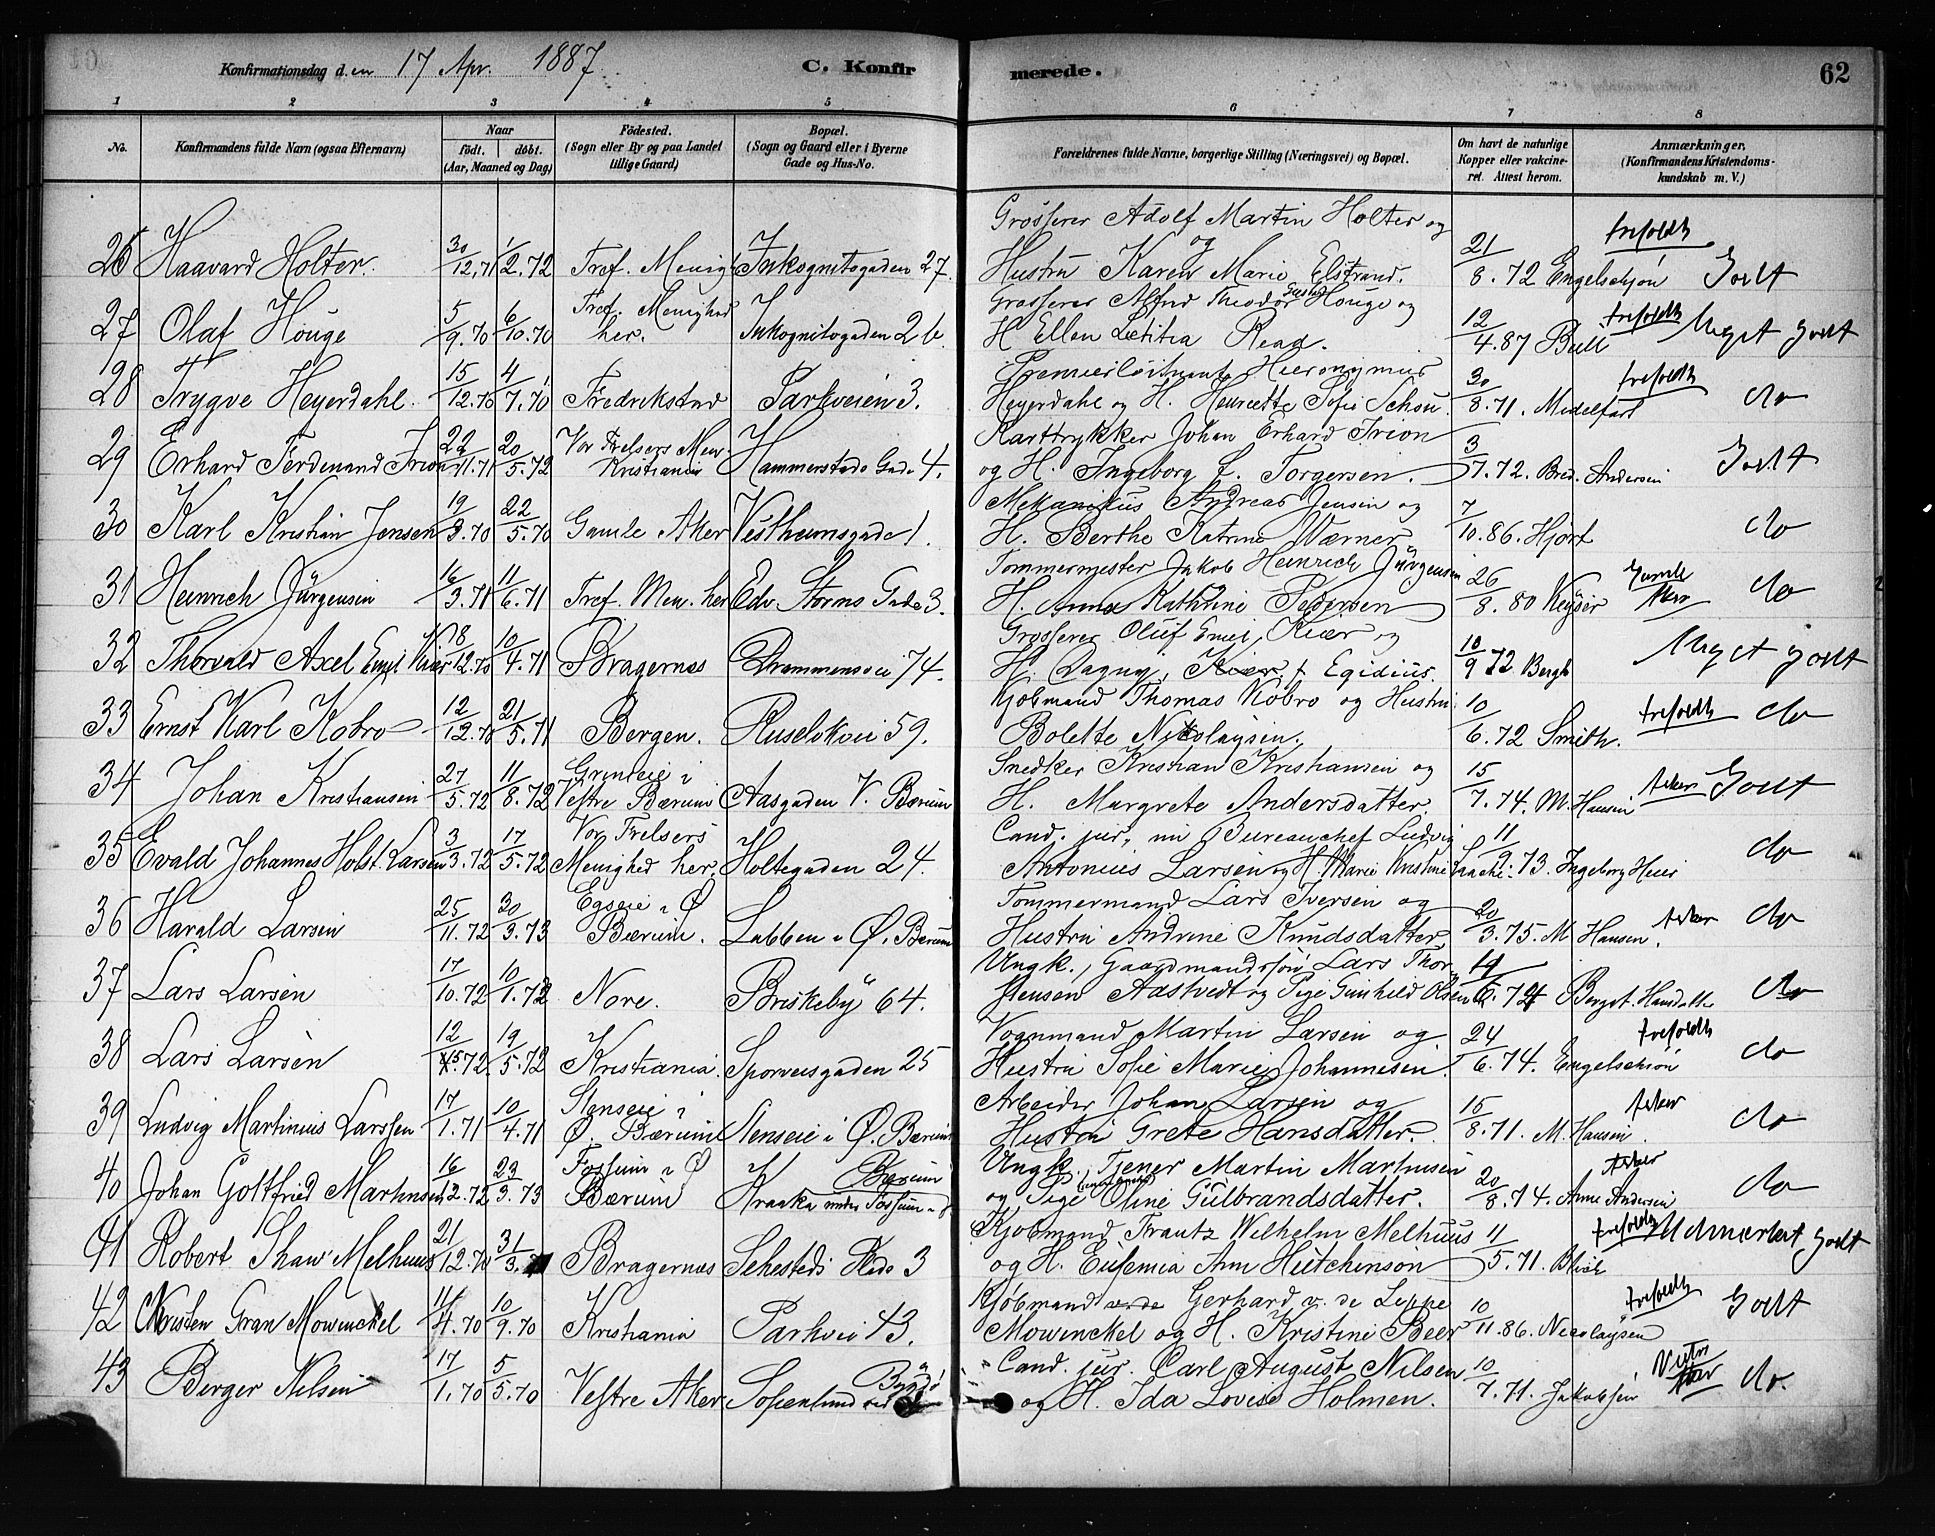 Konfirmationsdag d.en 17 Apr. 1887 C. Konfirmerede. 62
1 2 3 4 5 6 7 8
No. Konfirmandens fulde Navn (ogsaa Efternavn) Naar født. døbt. (Aar, Maaned og Dag) Fødested. (Sogn eller By og paa Landet tillige Gaard) Bopæl. (Sogn og Gaard eller i Byerne Gade og Hus-No. Forældrenes fulde Navne, borgerlige Stilling (Næringsvei) og Bopæl. Om havt de naturlige Kopper eller vakcineret. Attest herom. Anmærkninger. (Konfirmandens Kristendomskundskab m. V.)
Grosserer Adolf Martin Holter og
26 Haavard Holter. 30/12.71 1/2.72 Tref. Menigh Inkognitogaden 27. Hustru Karen Marie Elstrand. 21/8.72 Engelschjøn trefoldh Godt
Grosserer Alfred Theodor Gustav Houge og
27 Olaf Houge 5/9.70 6/10.70 Tref. Menighed her. Inkognitogaden 2 b. H Ellen Lætitia Read. 12/4.87 Bull trefoldh Meget godt
Premierløitnant Hieronymus
28 Trygve Heyerdahl. 15/12.70 4/7.70 Fredrikstad Parkveien 3. Heyerdahl og H. Henriette Sofie Schou. 30/8.71. Medelfart trefoldh do
Karttrykker Johan Erhard Irion
29 Erhard Ferdinand Irion 22/11.71 20/5.72 Vor Frelsers Men. Kristiania Hammerstads Gade 4. og H. Ingeborg f. Torgersen. 3/7.72. Bred. Andersen Godt
Mekanikus Andreas Jensen og
30 Karl Kristian Jensen 19/3.70 22/5.70 Gamle Aker Vestheimsgade 1. H. Berthe Katrine Wærner 7/10.86. Hjort do
Tømmermester Jakob Heinrich Jürgensen
31 Heinrich Jürgensen 16/3.71 11/6.71 Tref. Men. her Edv. Storms Gade 3. H. Anna Kathrine Pedersen 26/8.80 Keyser Gamle Aker do
Grosserer Oluf Emil Kiær og
32 Thorvald Axel Emil Kiær 8/12.70 10/4.71 Bragernes Drammensvei 74. H. Dagny, Kiær f. Egidius. 10/9 72 Bergh Meget godt
Kjøbmand Thomas Kobro og Hustru
33 Ernst Karl Kobro 12/12.70 21/5.71 Bergen. Ruseløkvei 59. Bolette Nikolaysen. 10/6.72 Smith. trefoldh do
Snedker Kristian Kristiansen og
34 Johan Kristiansen 27/5.72 11/8.72 Grinieie i Vestre Bærum Aasgaden V. Bærum H. Margrete Andersdatter 15/7.74. M. Hansen Asker Godt
Cand. jur, nu Bureauchef Ludvig
35 Evald Johannes Holst Larsen 3/3.72 17/5.72 Vor Frelsers Menighed her. Holtegaden 24. Antonius Larsen og H. Marie Kristine 11/9.73. Ingeborg Heier do
Tømmermand Lars Iversen og
36 Harald Larsen 25/11.72 30/3.73 Egseie i Ø Bærum. Labben i Ø. Bærum Hustru Andrine Knudsdatter 20/3.75. M Hansen. Asker do
Ungk., Gaardmandssøn Lars Thor-
37 Lars Larsen 17/10.72 10/1.72 Nore. Briskeby 64. stensen Aastvedt og Pige Gunhild Olsen 14/6.74 Berget. Hansdatter do
Vognmand Martin Larsen og
38 Lars Larsen 12/5.72. 19/5.72 Kristiania. Sporveisgaden 25 Hustru Sofie Marie Johannesen. 24/6.74. Engelschiøn trefoldh do
Arbeider Johan Larsen og
39 Ludvig Martinius Larssen 17/1.71 10/4.71 Stenseie i Ø. Bærum Stenseie i Ø. Bærum Hustru Grete Hansdatter. 15/8.71. M. Hansen. Asker do
Ungk., Tjener Martin Martinsen
40 Johan Gottfried Martinsen 16/12.72 23/3.73 Fossum i Ø Bærum Kraaka under Fossum i Ø Bærum og Pige Oline Gulbrandsdatter. 20/8.74. Anne Andersen Asker do
Kjøbmand Frantz Wilhelm Melhuus
41 Robert Shaw Melhuus 21/12.70 31/3. Bragernes Sehesteds Plads 3 og H. Eufemia Ann Hutchinson 11/5.71. Blich trefoldh Udmerket godt
Kjøbmand Gerhard v. de Lippe
42 Kristen Gran Mowinckel 11/4.70 10/9.70 Kristiania Parkvei 43. Mowinckel og H. Kristine Beer 10/11.86. Nicolaysen trefoldh Godt
Cand. jur. Carl August Nilsen
43 Berger Nilsen 17/1.70 5/5.70 Vestre Aker Sofienlund ved Bygdø og H. Ida Lovise Holmen. 10/7.71. Jakobsen Vestre Aker do.